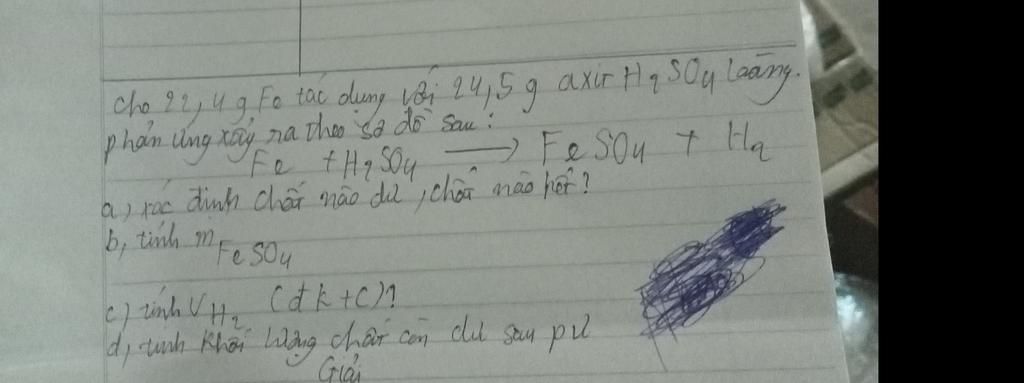 Cho 22,4 g Fe tác dụng với 24,5 g axit H2SO4 loãng.
phản ứng xảy ra theo sơ đồ sau:
Fe + H2SO4 ⟶ FeSO4 + H2
a, xác định chất nào dư, chất nào hết?
b, tính m FeSO4
c) tính V H2 (đk t C)?
d, tính khối lượng chất còn dư sau pư
Giải